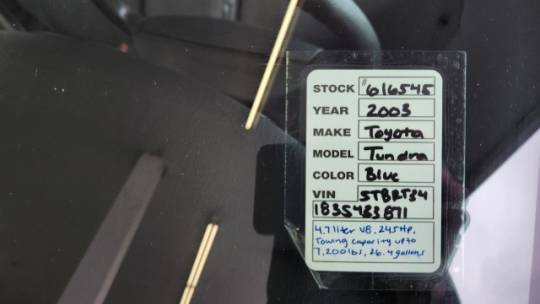 STOCK #616545
YEAR 2003
MAKE Toyota
MODEL Tundra
COLOR Blue
VIN 5TBRT34
1835483871
4.7 liter V8. 245 Hp.
Towing capacity up to
7,200 lbs, 26.4 gallons